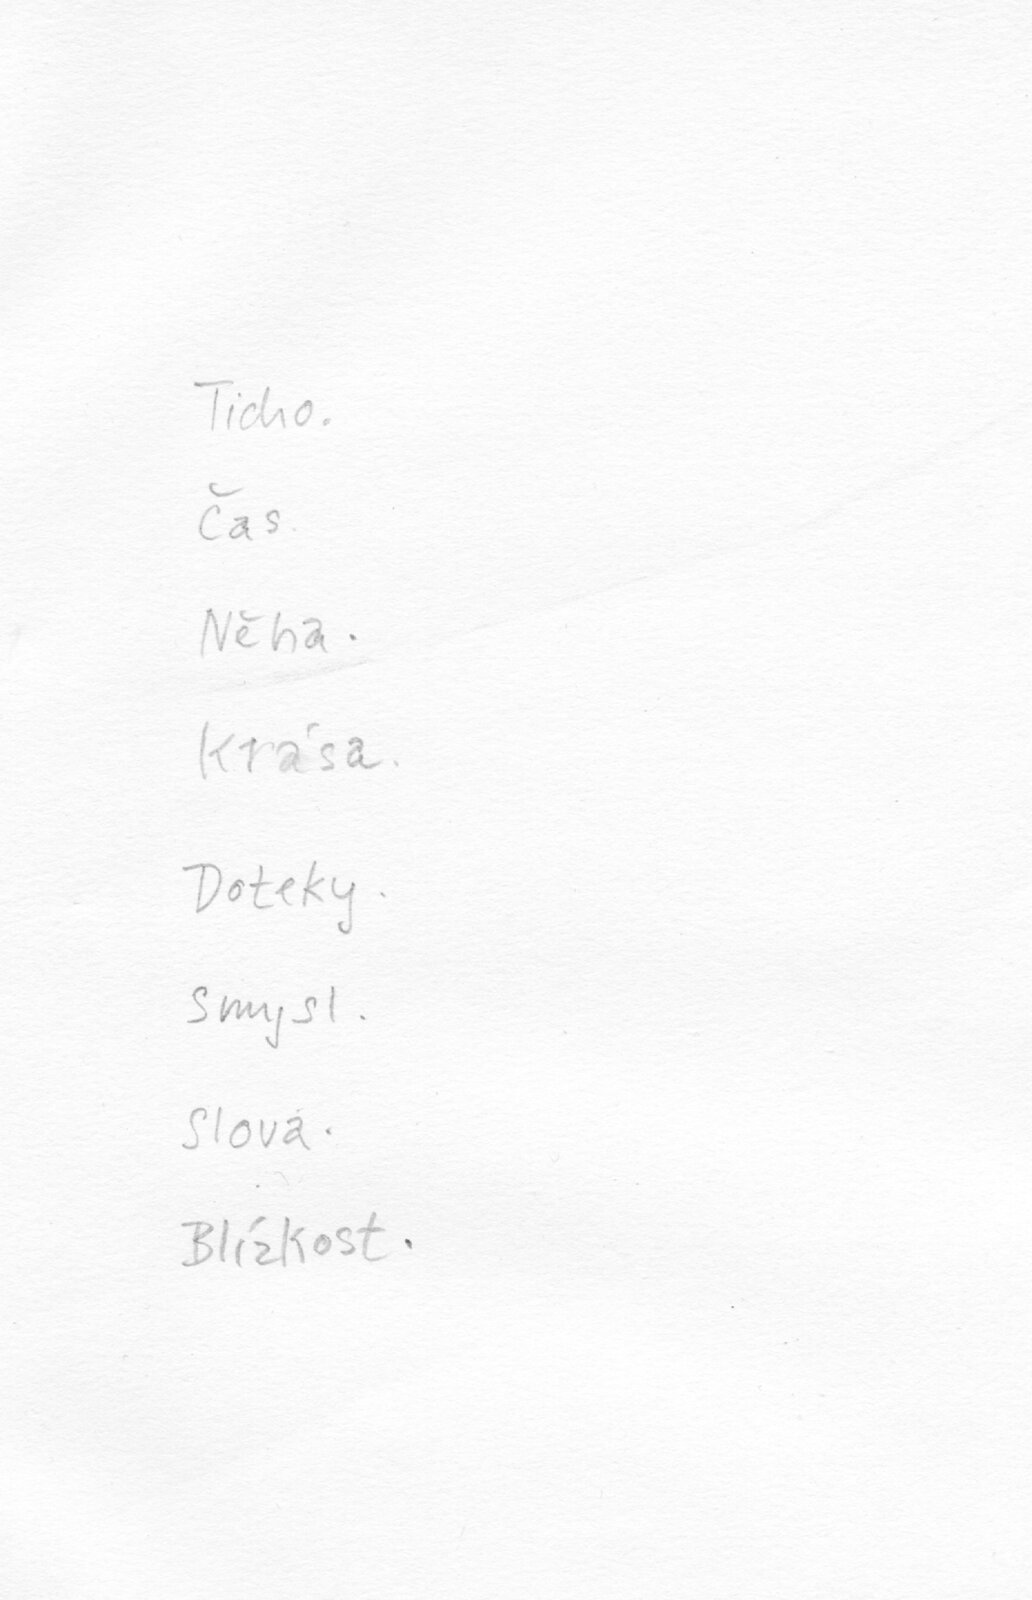 Ticho.
Čas.
Něha.
Krása.
Doteky.
Smysl.
Slova.
Blízkost.